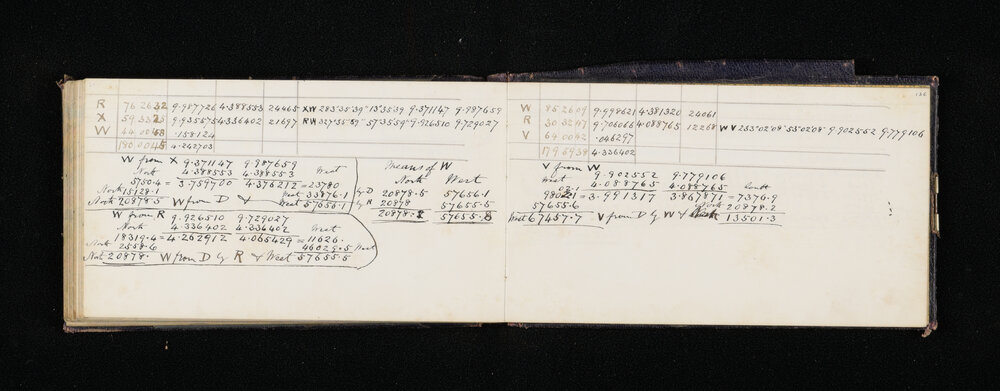 R 76 26 32 9.987726 4.388553 24465 XW 283°35'39" 13°35'39 9.371147 9.987659
X 59 33 25 9.935575 4.336402 21697 RW 327°55'59" 57°35'59" 9.926510 9.729027
W 44 00 48 .158124
180 00 45 4.242703
W from X 9.371147 9.987659
North 4.388553 4.388553 West
5750.4 = 3.759700 4.376212 = 23780
North 15128.1 West 33876.1
North 20878.5 W from D & West 57656.1
W from R 9.926510 9.729027
North 4.336402 4.336402 West
18319.4 = 4.262912 4.065429 = 11626.
North 2558.6 46029.5 West
Nort 20878. W from D by R & West 57655.5
Means of W
North West
by D 20878.5 57656.1
by R 20878 57655.5
20878.2 57655.8
136
W 85 26 09 9.998621 4.381320 24061
R 30 32 47 9.706066 4.088765 12268 WV 233°02'08" 53°02'08" 9.902552 9.779106
V 64 00 42 .046297
179 59 38 4.336402
V from W
West 9.902552 9.779106
4.088765 4.088765 South
9802.1 = 3.991317 3.867871 = 7376.9
57655.6 North 20878.2
West 67457.7 V from D by W & North 13501.3